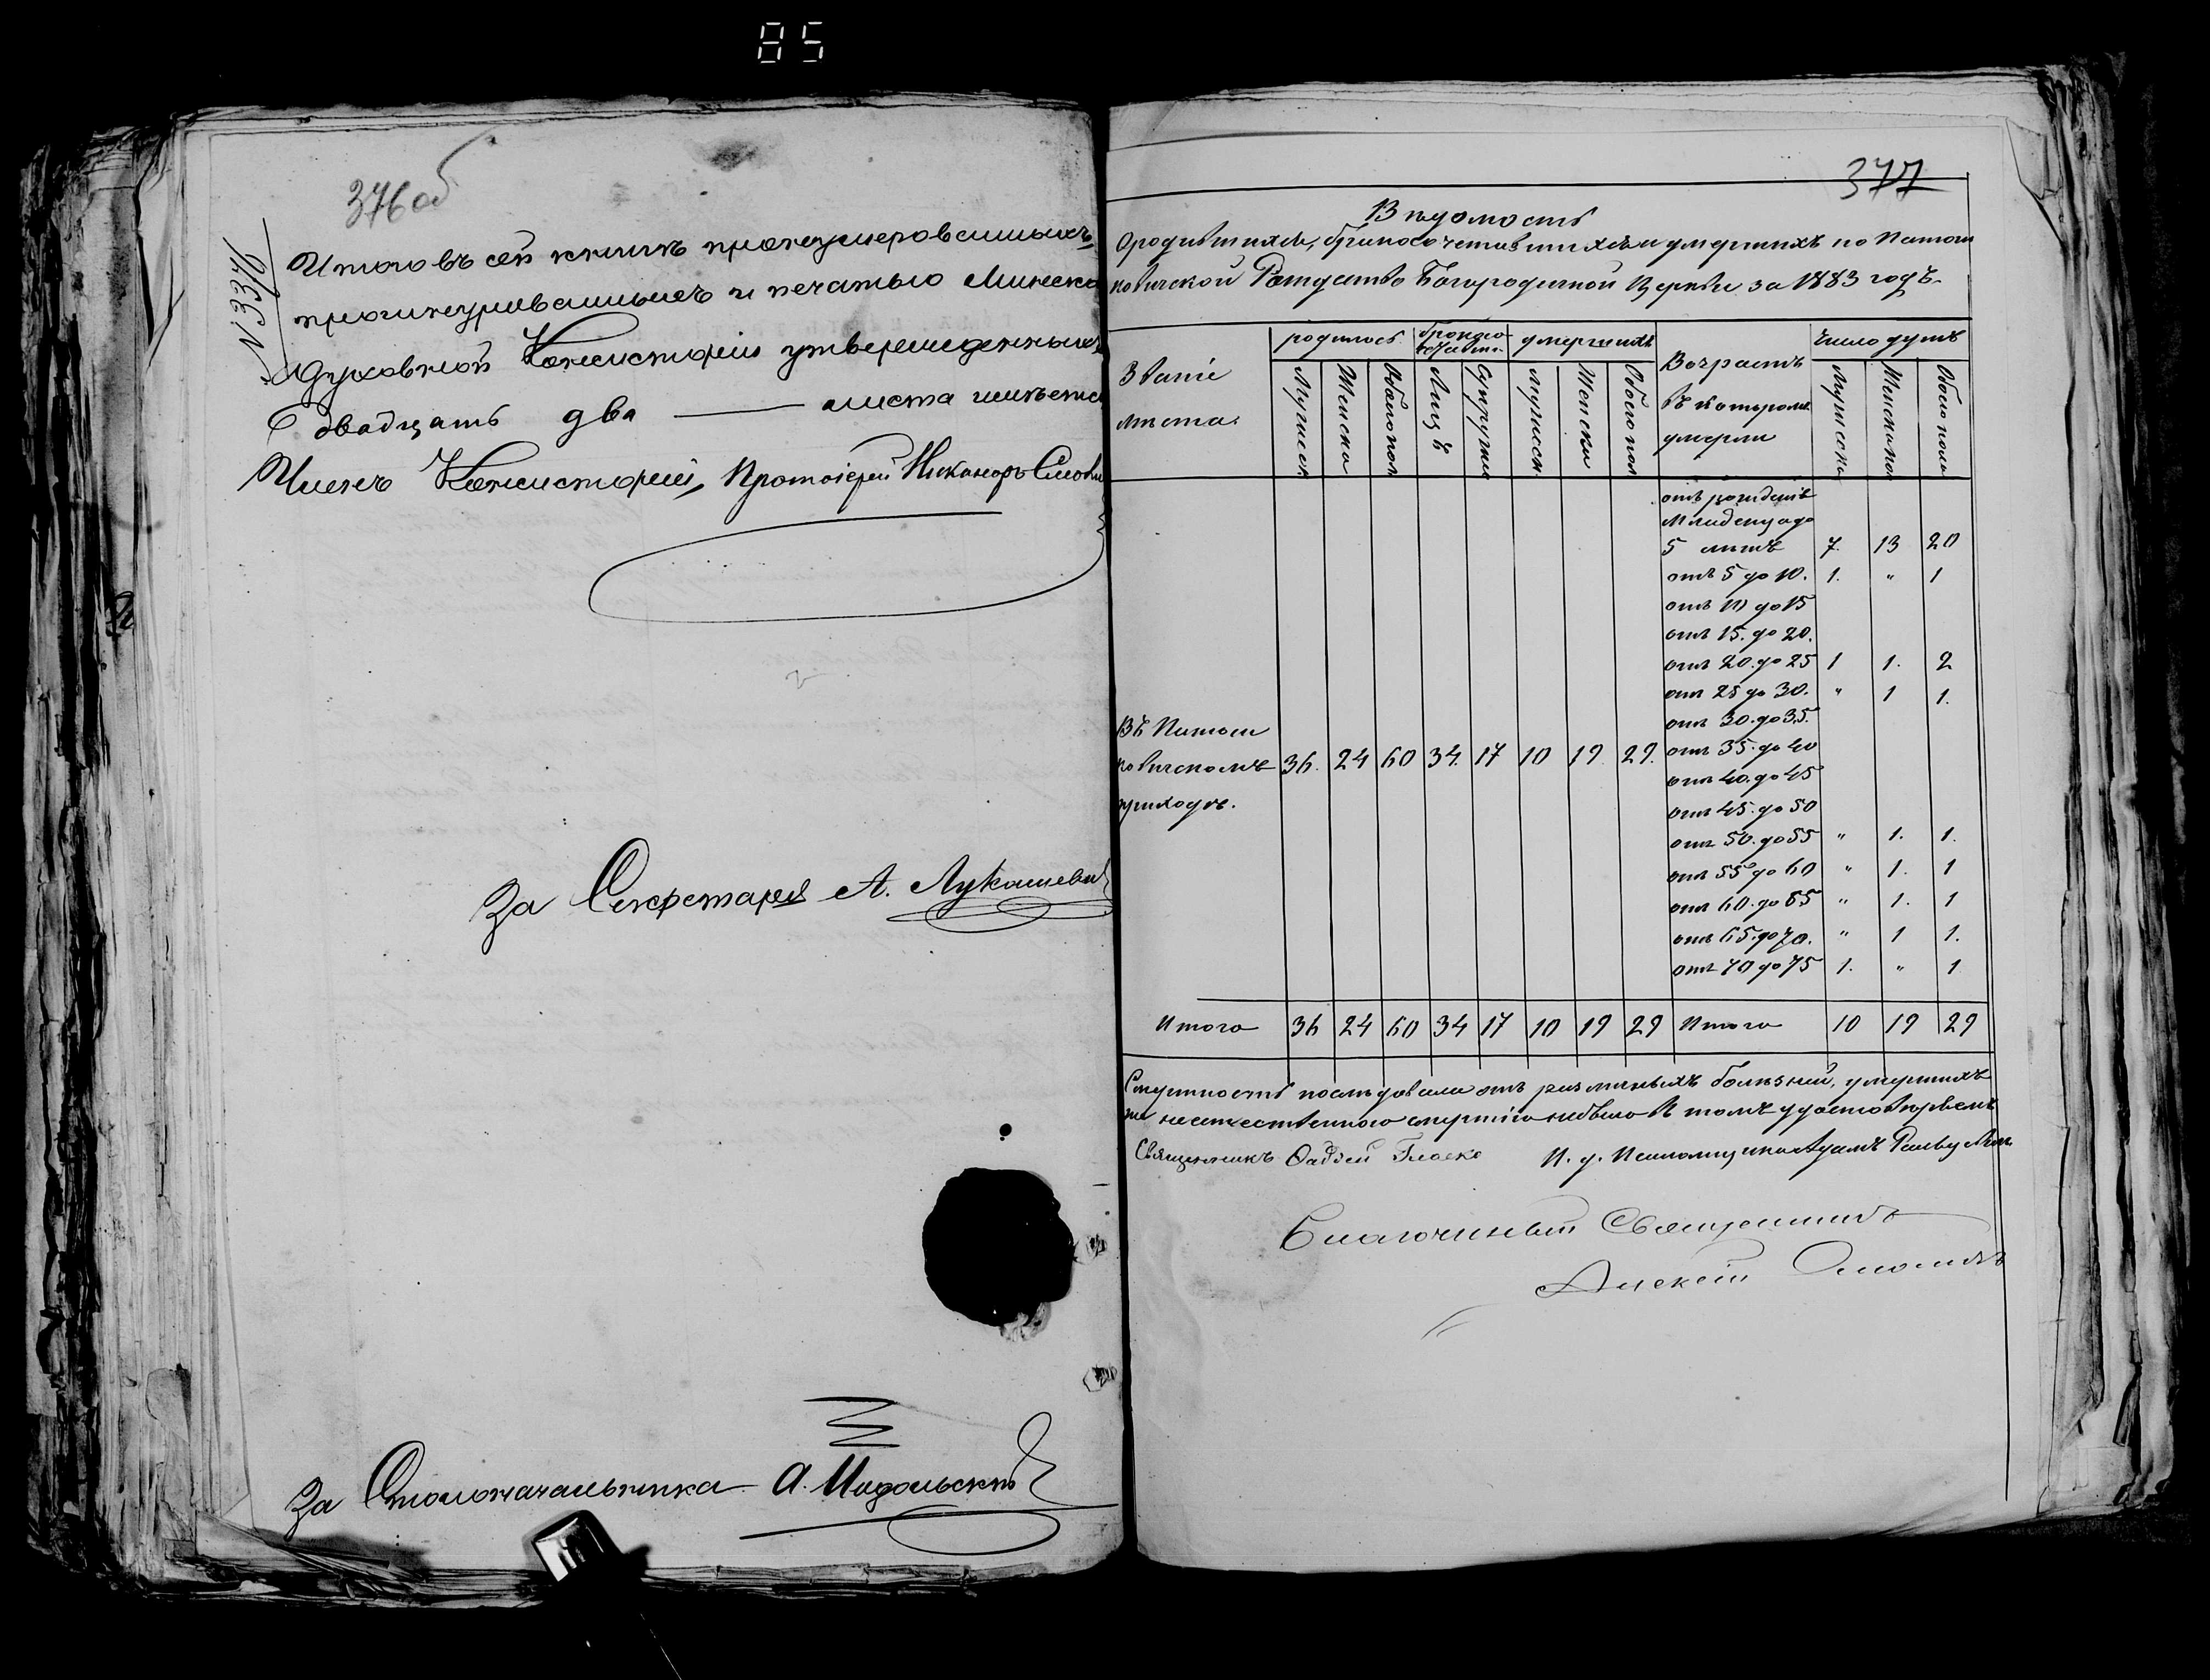 85
376 об
N 3316
Итого въ сей книгѣ пронумерованныхъ
прошнурованныхъ и печатью Минско
Духовной Консисторіи утвержденныхъ
двадцать два — листа имѣетса
Членъ Консисторіи, Протоіерей Никаноръ
За Секретаря А. Лукашеви
За Столоначальника А.
377
Вѣдомость
О родившихся, бракосочетавшихся и умершихъ по
Рождество Богородичной Церкви за 1883 годъ.
Званіе мѣста. родилось бракосочетавш. умершихъ Возрастъ въ которомъ умерли число душъ
Мужеск Женска Обоего пол Лицъ Супруже Мужеск Женска Обоего пол Мужеска Женскаго Обоего пола
отъ рожденія
Младенца до
5 лѣтъ 7. 13 20
отъ 5 до 10. 1. " 1
отъ 10 до 15
отъ 15. до 20.
отъ 20. до 25 1 1. 2
отъ 25 до 30. " 1 1.
отъ 30. до 35.
Въ
приходѣ. 36. 24 60 34. 17 10 19 29. отъ 35. до 40
отъ 40. до 45
отъ 45. до 50
отъ 50. до 55 " 1. 1.
отъ 55 до 60 " 1. 1
отъ 60. до 65 " 1. 1
отъ 65. до 70. " 1 1.
отъ 70 до 75 1. " 1
Итого 36 24 60 34 17 10 19 29 Итого 10 19 29
Смертность послѣдовала отъ различныхъ болѣзней, умершихъ
же неестественного смертію небыло въ томъ удостовѣряемъ
Священникъ Фаддей И. д. Псаломщика Адамъ
Благочинный Священникъ
Алексій